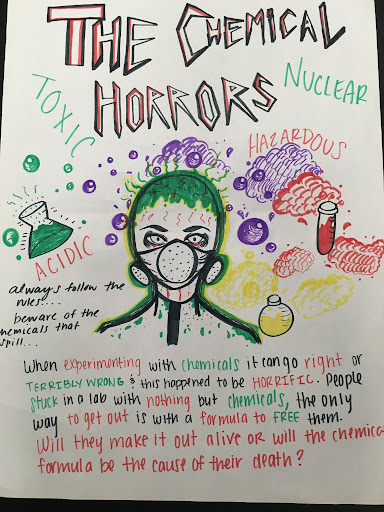 THE CHEMICAL
HORRORS
TOXIC
NUCLEAR
HAZARDOUS
ACIDIC
always follow the
rules....
beware of the
chemicals that
spill...
When experimenting with chemicals it can go right or
TERRIBLY WRONG & this happened to be HORRIFIC. People
stuck in a lab with nothing but chemicals, the only
way to get out is with a formula to FREE them.
Will they make it out alive or will the chemica
formula be the cause of their death?